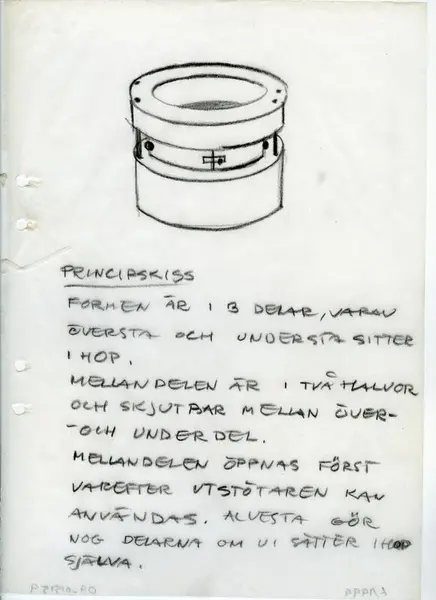 PRINCIPSKISS
FORMEN ÄR I 3 DELAR, VARAV
ÖVERSTA OCH UNDERSTA SITTER
IHOP.
MELLANDELEN ÄR I TVÅ HALVOR
OCH SKJUTBAR MELLAN ÖVER-
-OCH UNDERDEL.
MELLANDELEN ÖPPNAS FÖRST
VAREFTER UTSTÖTAREN KAN
ANVÄNDAS. ALVESTA GÖR
NOG DELARNA OM VI SÄTTER IHOP
SJÄLVA.